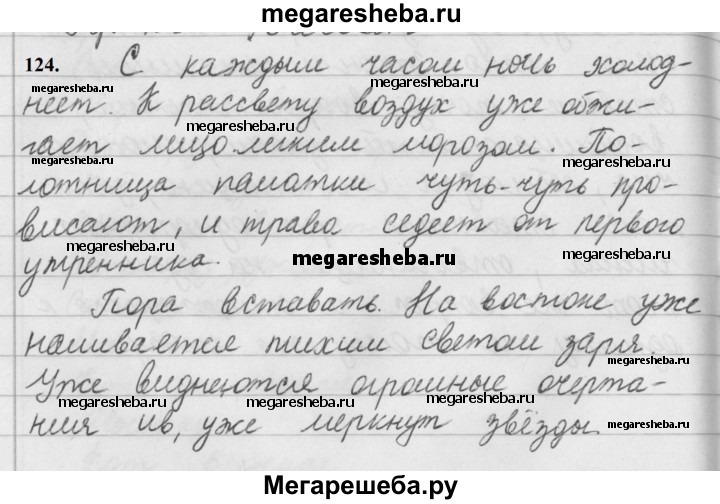 megaresheba.ru
124. С каждым часом ночь холод-
неет. К рассвету воздух уже обжи-
гает лицо легким морозом. По-
лотнища палатки чуть-чуть про-
висают, и трава седеет от первого
утренника.
Пора вставать. На востоке уже
наливается тихим светом заря.
Уже виднеются огромные очерта-
ния ив, уже меркнут звёзды.
megaresheba.ru
megaresheba.ru
megaresheba.ru
megaresheba.ru
megaresheba.ru
megaresheba.ru
megaresheba.ru
megaresheba.ru
megaresheba.ru
megaresheba.ru
megaresheba.ru
megaresheba.ru
megaresheba.ru
megaresheba.ru
Мегарешеба.ру